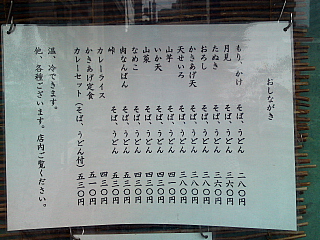 おしながき
もり、かけ そば、うどん 二八〇円
月見 そば、うどん 三六〇円
たぬき そば、うどん 三六〇円
おろし そば、うどん 三八〇円
かきあげ天 そば、うどん 三八〇円
天せいろ そば、うどん
山芋 そば、うどん 四一〇円
いか天 そば、うどん 四三〇円
山菜 そば、うどん 四三〇円
なめこ そば、うどん 四三〇円
肉なんばん そば、うどん 四五〇円
峠 そば、うどん 五三〇円
カレーライス 四三〇円
かきあげ定食 五一〇円
カレーセット(そば、うどん付)五三〇円
温、冷できます。
他、各種ございます。店内ご覧ください。